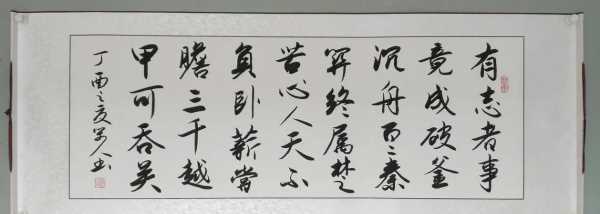 有志者事
竟成破釜
沉舟百二秦
关终属楚
苦心人天不
负卧薪尝
胆三千越
甲可吞吴
丁酉之夏
书